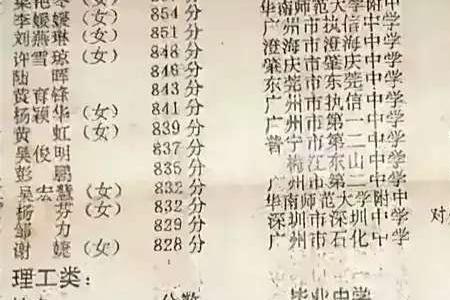 李媛媛(女) 854分 华南师范大学附中
刘燕琳(女) 851分 广州市执信中学
许雪琼(女) 848分 澄海市澄海中学
陆 晖 846分 肇庆市肇庆中学
黄育锋 843分 东莞市东莞中学
杨颖华(女) 841分 广州市执信中学
黄 虹(女) 839分 广州市第一中学
吴俊明 837分 普宁市第二中学
彭 鹏 835分 梅州市东山中学
吴宏慧(女) 832分 江市第二中学
杨 芬(女) 832分 华南师范大附中
邹 力 829分 深圳市深圳中学
谢 婕(女) 828分 广州市石化中学
对
理工类:
分数 毕业中学